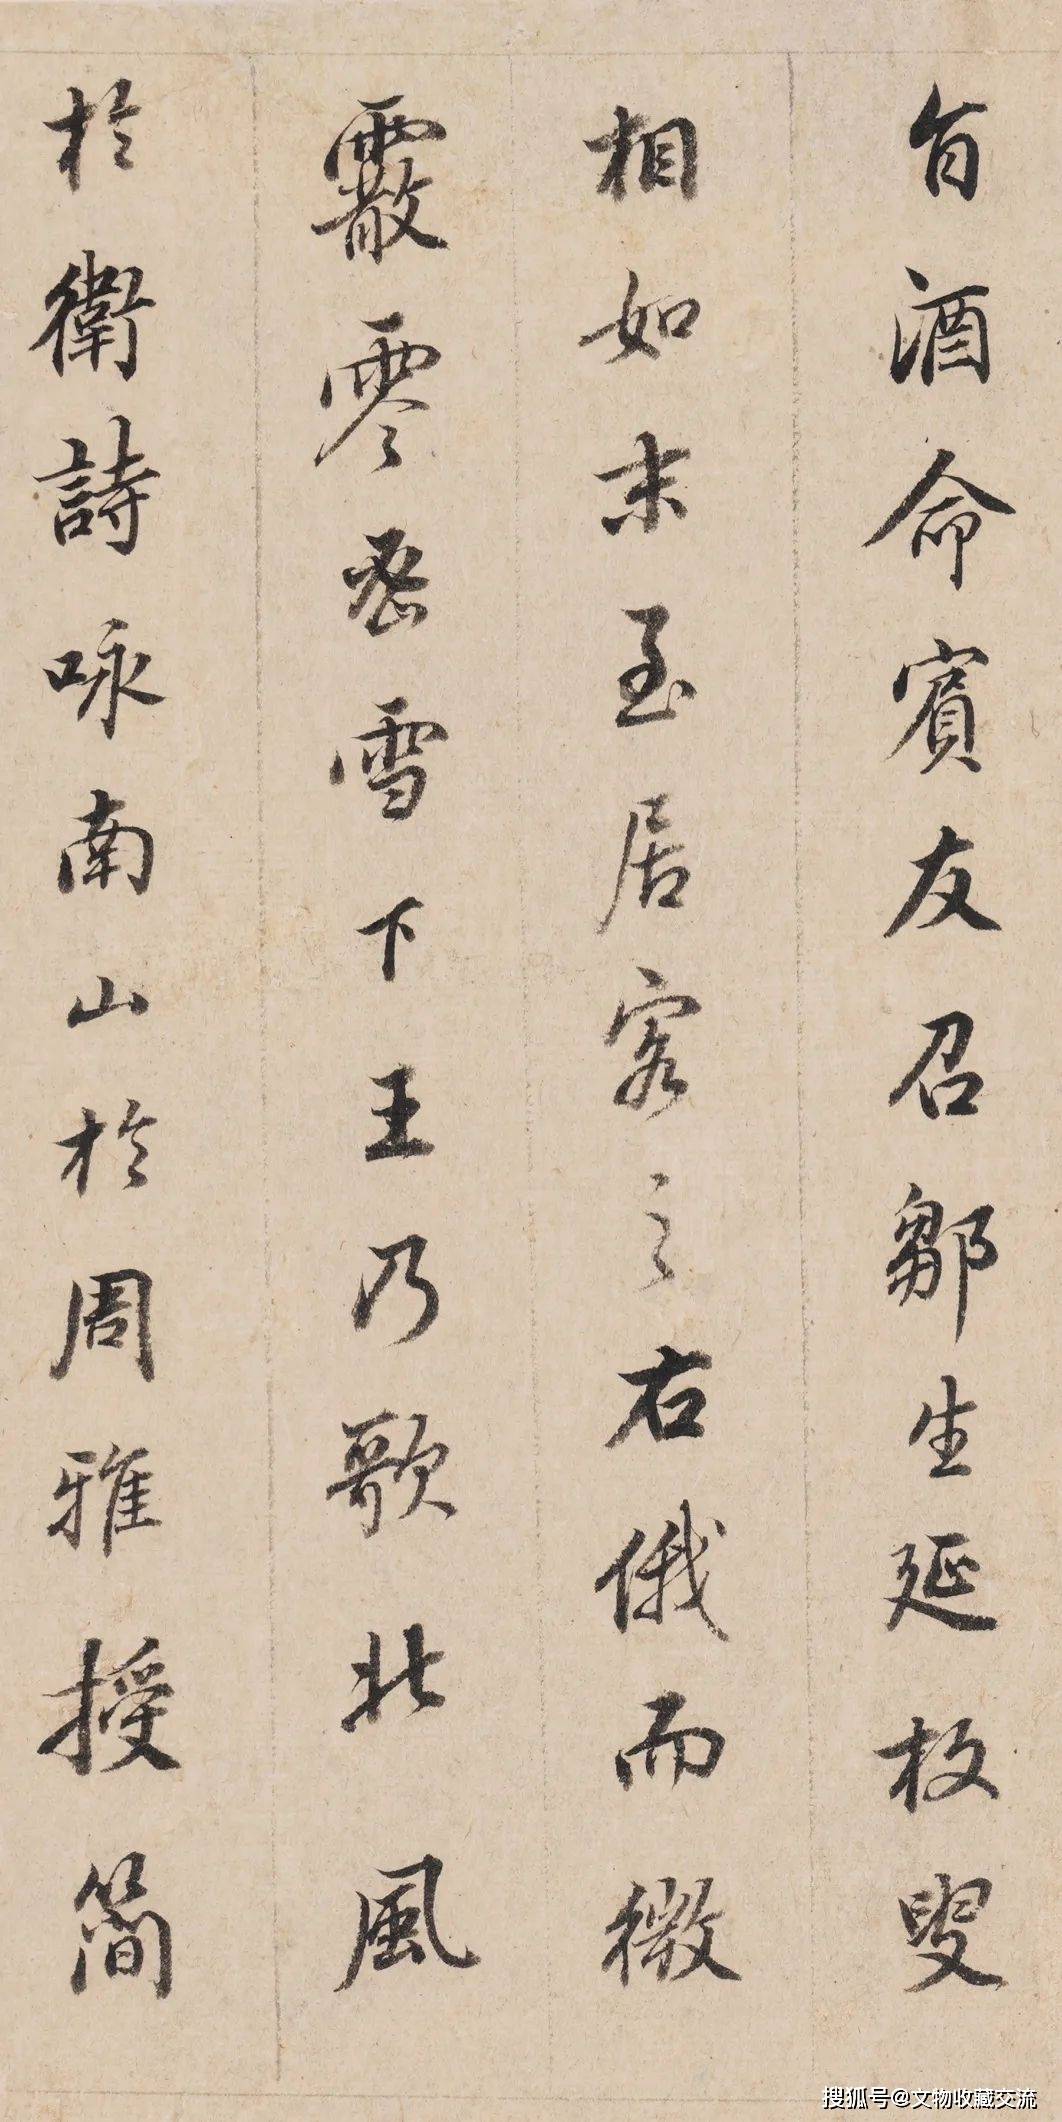 旨酒命賓友召鄒生延枚叟
相如末至居客之右俄而微
霰零密雪下王乃歌北風
於衛詩咏南山於周雅授簡
搜狐号@文物收藏交流